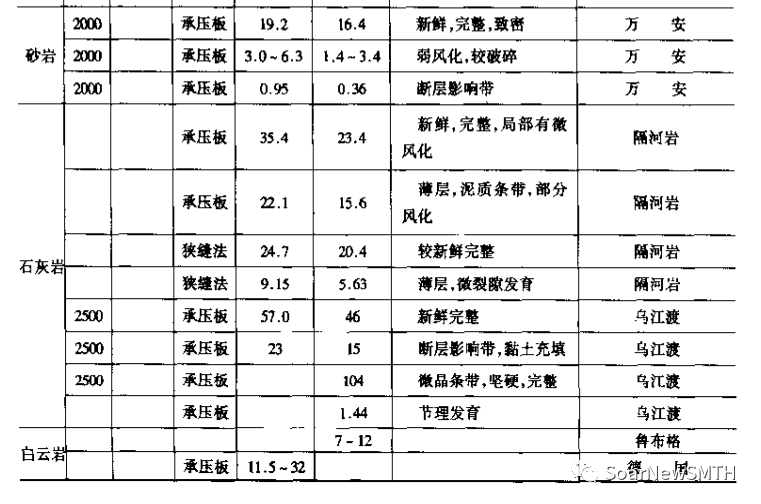 2000 承压板 19.2 16.4 新鲜,完整,致密 万 安
砂岩 2000 承压板 3.0~6.3 1.4~3.4 弱风化,较破碎 万 安
2000 承压板 0.95 0.36 断层影响带 万 安
承压板 35.4 23.4 新鲜,完整,局部有微 隔河岩
风化
承压板 22.1 15.6 薄层,泥质条带,部分 隔河岩
风化
狭缝法 24.7 20.4 较新鲜完整 隔河岩
石灰岩 狭缝法 9.15 5.63 薄层,微裂隙发育 隔河岩
2500 承压板 57.0 46 新鲜完整 乌江渡
2500 承压板 23 15 断层影响带,黏土充填 乌江渡
2500 承压板 104 微晶条带,坚硬,完整 乌江渡
承压板 1.44 节理发育 乌江渡
白云岩 7~12 鲁布格
承压板 11.5~32 德 国
SoarNewSMTH